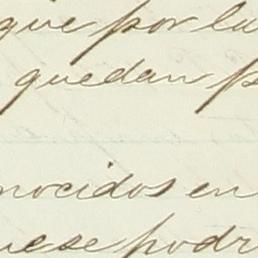 que por lu
quedan p
nocidos en
uese podr